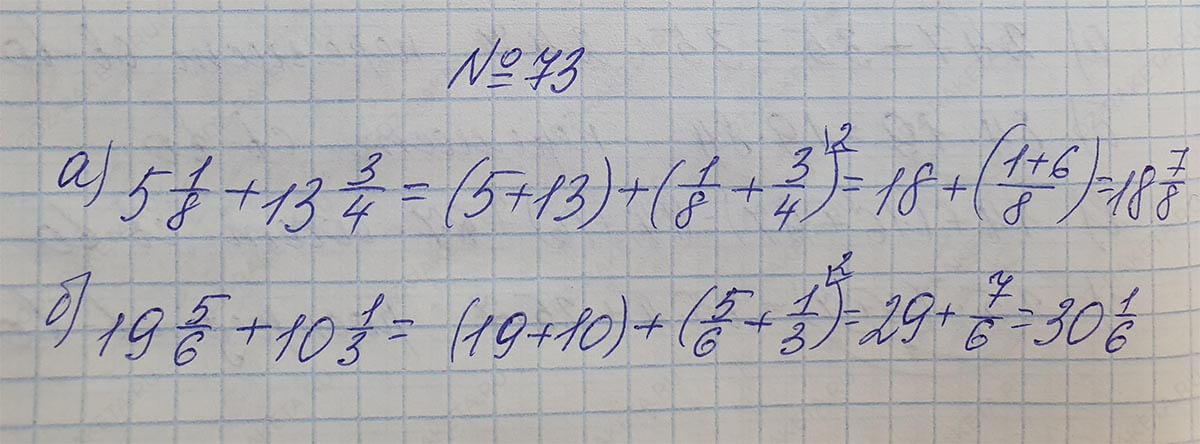 № 73
а) 5 1/8 + 13 3/4 = (5+13) + (1/8 + 3/4)² = 18 + (1+6/8) = 18 7/8
б) 19 5/6 + 10 1/3 = (19+10) + (5/6 + 1/3)² = 29 + 7/6 = 30 1/6